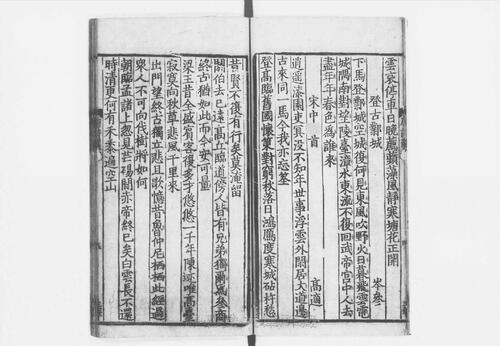 雲哀停車日晚薦蘋藻風靜寒塘花正開
登古鄴城 岑參
下馬登鄴城空復何見東風吹野火日暮飛雲
城隅南對望陵臺漳水東流不復回武帝宮中人去
盡年年春色爲誰來
宋中 首 高適
逍遥漆園吏冥没不知年世事浮雲外閑居大道邊
古來同一馬今我亦忘筌
登高臨舊國懷對窮秋落日鴻鴈度寒城砧杵愁
昔賢不復有行矣莫淹留
閼伯去已遠高丘臨道傍人皆有兄弟爾獨爲參商
終古猶如此而今安可量
梁王昔全盛賓客復多才悠悠一千年陳迹唯高臺
寂寞向秋草悲風千里來
出門望終古獨立悲且歌憶昔魯仲尼栖栖此經過
衆人不可向伐樹將如何
朝臨孟諸上忽見芒碭間赤帝終已矣白雲長不還
時清更何有禾黍遍空山